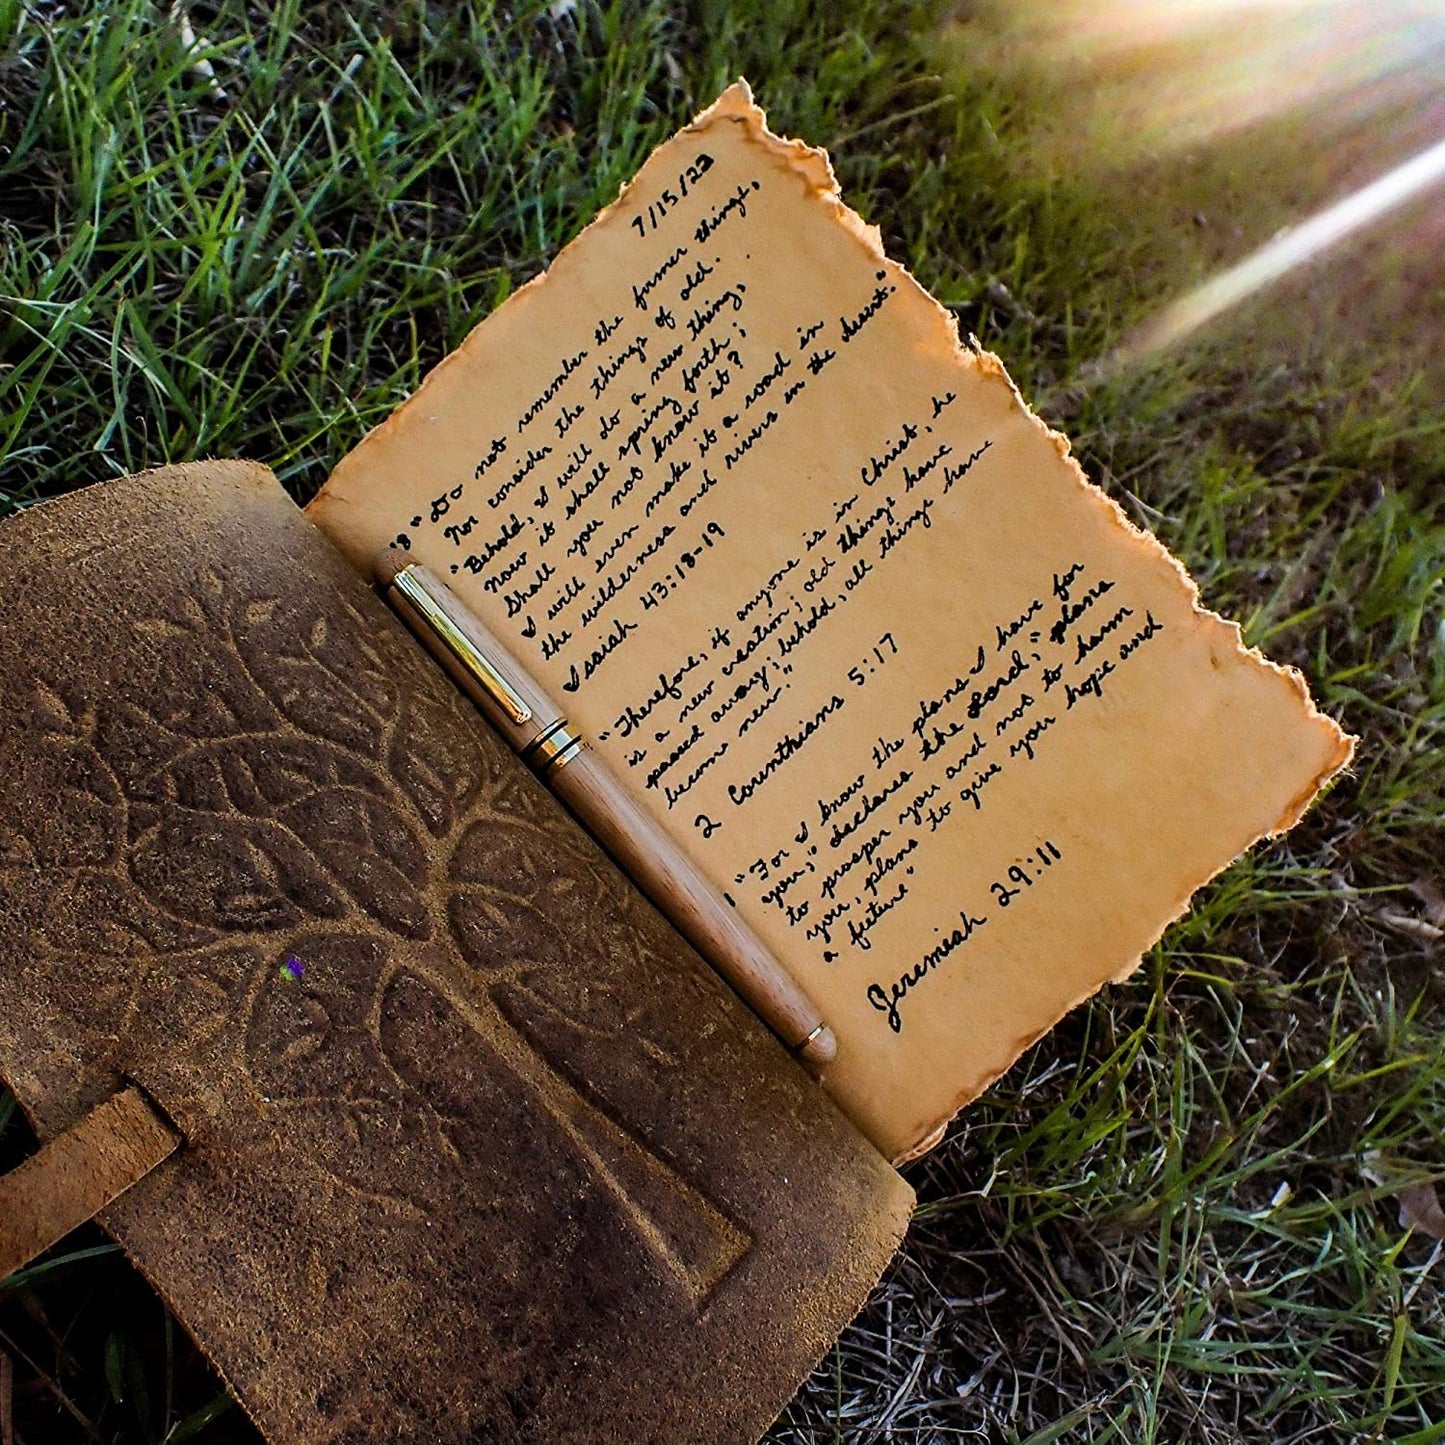 7/15/23
18 "Do not remember the former things,
Nor consider the things of old.
"Behold, I will do a new thing,
Now it shall spring forth;
Shall you not know it?
I will even make it a road in
the wilderness and rivers in the desert."
Isaiah 43:18-19
"Therefore, if anyone is in Christ, he
is a new creation; old things have
passed away; behold, all things have
become new."
2 Corinthians 5:17
11 "For I know the plans I have for
you," declares the Lord," plans
to prosper you and not to harm
you, plans to give you hope and
a future"
Jeremiah 29:11